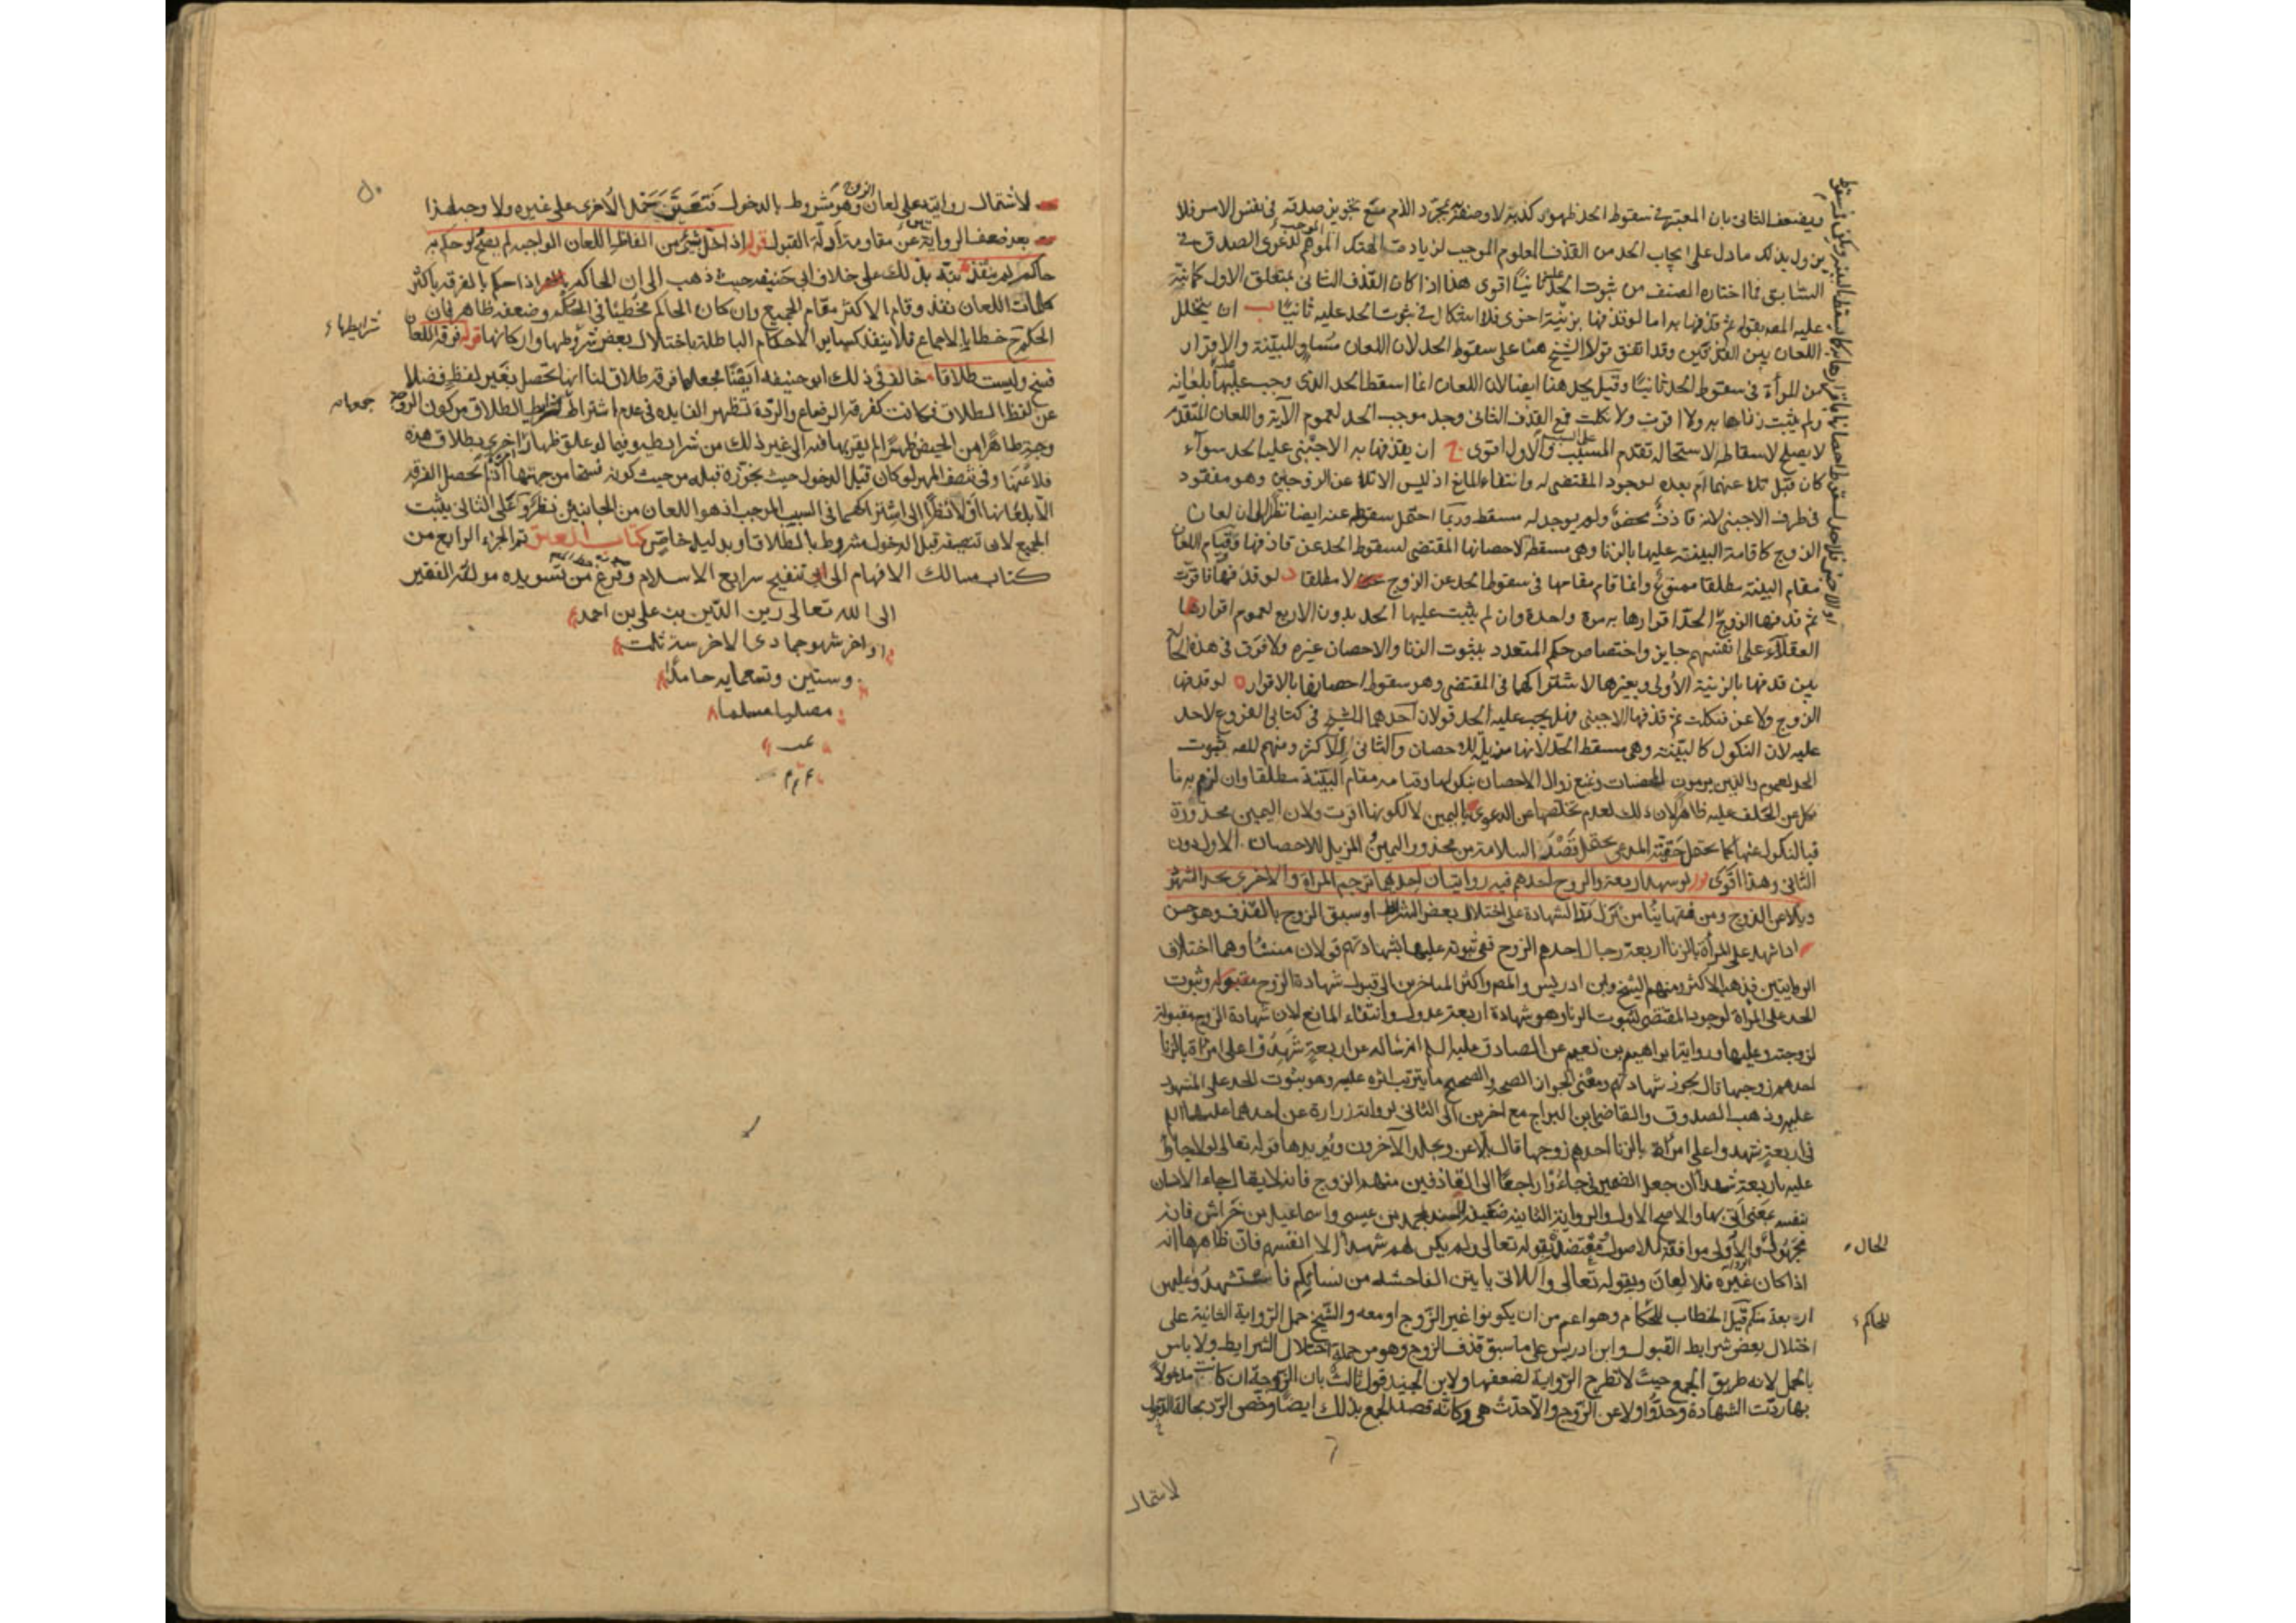 ويضعف الثاني بان المعتبر في سقوط الحد ظهور كذبه لا وصفه بمجرد اللازم مع تجويز صدقه في نفس الامر فلا
يزول بذلك ما دل على ايجاب الحد من القذف المعلوم الموجب لزيادة الهتك الموهم لدعوى الصدق في
السابق فما اختاره المصنف من ثبوت الحد عليه ثانيا اقوى هذا اذا كان القذف الثاني بمتعلق الاول كما نبه
عليه المص بقوله ثم قذفها به اما لو قذفها بزنية اخرى فلا اشكال في ثبوت الحد عليه ثانيا ب ان يتخلل
اللعان بين القذفين وقد اتفق قولا الشيخ هنا على سقوط الحد لان اللعان مساو للبينة والاقرار
من المرأة في سقوط الحد ثانيا وقيل يحد هنا ايضا لان اللعان انما اسقط الحد الذي وجب عليه بلعانه
ولم يثبت زناها به ولا اقرت ولا نكلت فمع القذف الثاني وجد موجب الحد لعموم الآية واللعان المتقدم
لا يصلح لاسقاطه لاستحالة تقدم المسبب على السبب والاول اقوى ج ان يقذفها به الاجنبي عليه الحد سواء
كان قبل تلاعنهما ام بعده لوجود المقتضي له وانتفاء المانع اذ ليس الا تلاعن الزوجين وهو مفقود
في طرف الاجنبي لانه قاذف محض ولم يوجد له مسقط وربما احتمل سقوطه عنه ايضا نظرا الى ان لعان
الزوج كاقامة البينة عليها بالزنا وهي مسقطة لاحصانها المقتضي لسقوط الحد عن قاذفها وقيام اللعان
مقام البينة مطلقا ممنوع وانما قام مقامها في سقوط الحد عن الزوج لا مطلقا د لو قذفها فاقرت
ثم قذفها الزوج الحد اقرارها به مرة واحدة وان لم يثبت عليها الحد بدون الاربع لعموم اقرار
العقلاء على انفسهم جايز واختصاص حكم المتعدد بثبوت الزنا والاحصان غيره ولا فرق في هذه
بين قذفها بالزنية الأولى وبغيرها لاشتراكهما في المقتضي وهو سقوط احصانها بالاقرار ه لو قذفها
الزوج ولاعن فنكلت ثم قذفها الاجنبي فهل يجب عليه الحد قولان احدهما للشيخ في كتابي الفروع لا حد
عليه لان النكول كالبينة وهي مسقط الحد لانها مزيلة للاحصان والثاني للاكثر ومنهم المص ثبوت
الحد لعموم والذين يرمون المحصنات ومنع زوال الاحصان بنكولها وقيامه مقام البينة مطلقا وان لزم به ما
نكل عن الحلف عليه ظاهرا لان ذلك لعدم تخلصها من الدعوى باليمين لا لكونها اقرت ولان اليمين محذورة
فبالنكول عنها كما يحتمل حقية المدعي يحتمل قصد السلامة من محذور اليمين المزيل للاحصان الاول دون
الثاني وهذا اقوى قوله لو شهد اربعة والزوج احدهم فيه روايتان احديهما ترجم المراة والاخرى يحد الشهود
ويلاعن الزوج ومن فقهائنا من نزل رد الشهادة على اختلال بعض الشرايط او سبق الزوج بالقذف وهو حسن
اذا شهد على المرأة بالزنا اربعة رجال احدهم الزوج ففي ثبوته عليها بشهادتهم قولان منشاوهما اختلاف
الروايتين فذهب الاكثر ومنهم الشيخ وابن ادريس والمص واكثر المتاخرين الى قبول شهادة الزوج وثبوت
الحد على المراة لوجود المقتضي لثبوت الزنا وهو شهادة اربعة عدول وانتفاء المانع لان شهادة الزوج مقبولة
لزوجته وعليها ورواية ابراهيم بن نعيم عن الصادق عليه السلام انه ساله عن اربعة شهدوا على امراة بالزنا
احدهم زوجها قال يجوز شهادتهم ومعنى الجواز الصحة والصحيح ما يترتب اثره عليه وهو ثبوت الحد على المشهود
عليه وذهب الصدوق والقاضي ابن البراج مع اخرين الى الثاني لرواية زرارة عن احدهما عليهما السلام
في اربعة شهدوا على امراة بالزنا احدهم زوجها قال يلاعن ويجلد الآخرون ويؤيدها قوله تعالى لولا جاؤا
عليه باربعة شهداء ان جعل الضمير في جاءوا راجعا الى القاذفين منهم الزوج فانه لا يقال جاء الانسان
بنفسه بمعنى اتى بها والاصح الاول والرواية الثانية ضعيفة السند بمحمد بن عيسى واسماعيل بن خراش فانه
مجهول والاولى موافقة للاصول معتضدة بقوله تعالى ولم يكن لهم شهداء الا انفسهم فان ظاهرها انه
الحال
اذا كان غيره فلا لعان وبقوله تعالى واللاتي ياتين الفاحشة من نسائكم فاستشهدوا عليهن
اربعة منكم قيل الخطاب للحكام وهو اعم من ان يكونوا غير الزوج او معه والشيخ حمل الرواية الثانية على
للحاكم
اختلال بعض شرايط القبول وابن ادريس على ما سبق قذف الزوج وهو من جملة اختلال الشرايط ولا باس
بالحمل لانه طريق الجمع حيث لا تطرح الرواية لضعفها ولابن الجنيد قول ثالث بان الزوجة ان كانت مدخولا
بها ردت الشهادة وحدوا ولاعن الزوج والا حدت هي وكانه قصد الجمع بذلك ايضا وخص الرد بحالة الدخول
لاشتمال
لاشتمال روايته على لعان الزوج وهو مشروط بالدخول فتعين حمل الأخرى على غيره ولا وجه لهذا
بعد ضعف الرواية عن مقاومة أدلة القبول قوله اذا اخل بشيء من الفاظ اللعان الواجبة لم يصح ولو حكم به
حاكم لم ينفذ نبه بذلك على خلاف ابي حنيفه حيث ذهب الى ان الحاكم اذا حكم بالفرقة باكثر
كلمات اللعان نفذ وقام الاكثر مقام الجميع وان كان الحاكم مخطئا في الحكم وضعفه ظاهر فان
الحكم ح خطا بالاجماع فلا ينفذ كساير الاحكام الباطلة باختلال بعض شروطها واركانها قوله فرقة اللعان
شرايطها
فسخ وليست طلاقا خالف في ذلك ابو حنيفه ايضا فجعلها فرقة طلاق لنا انها تحصل بغير لفظ فضلا
عن لفظ الطلاق فكانت كفرقة الرضاع والردة وتظهر الفايده في عدم اشتراط شرايط الطلاق من كون الزوجة
وجزء طاهرا من الحيض طهرا لم يقربها فيه الى غير ذلك من شرايطه وفيما لو علق ظهار اخرى بطلاق هذه
فلاعنها وفي تنصف المهر لو كان قبل الدخول حيث يجوزه قبله من حيث كونه فسخا من جهتها اذ لم تحصل الفرقه
الا بلعانها او لا نظرا الى اشتراكهما في السبب الموجب اذ هو اللعان من الجانبين نظر وعلى الثاني يثبت
الجميع لان تنصيفه قبل الدخول مشروط بالطلاق او بدليل خاص كتاب العتق تم الجزء الرابع من
كتاب مسالك الافهام الى تنقيح شرايع الاسلام وفرغ من تسويده مؤلفه الفقير
الى الله تعالى زين الدين بن علي بن احمد
اواخر شهر جمادى الاخر سنة ثلث
وستين وتسعمايه حامدا
مصليا مسلما